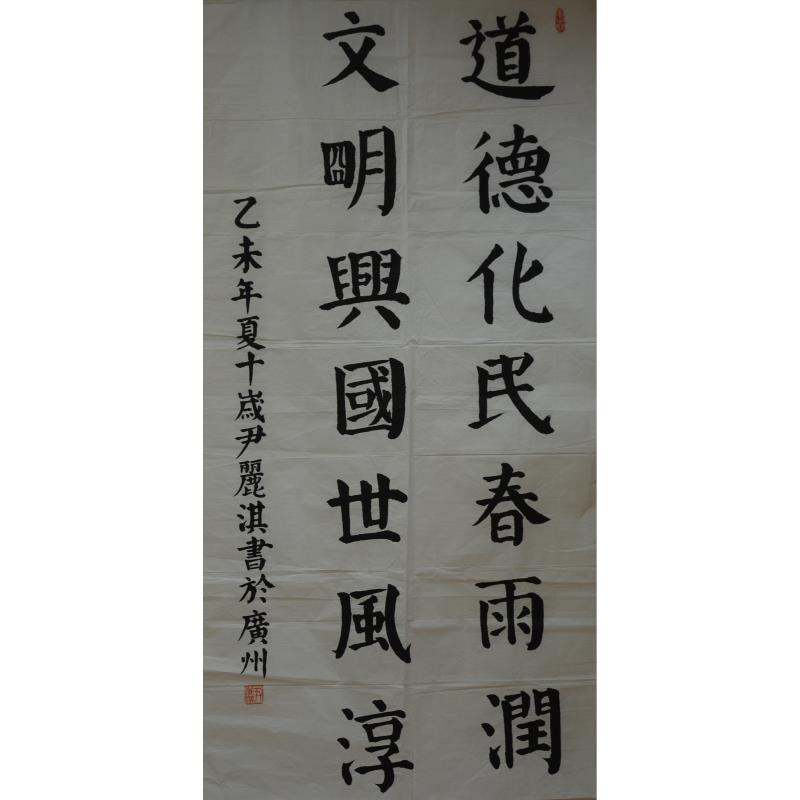 道德化民春雨潤
文明興國世風淳
乙未年夏十歲尹麗淇書於廣州